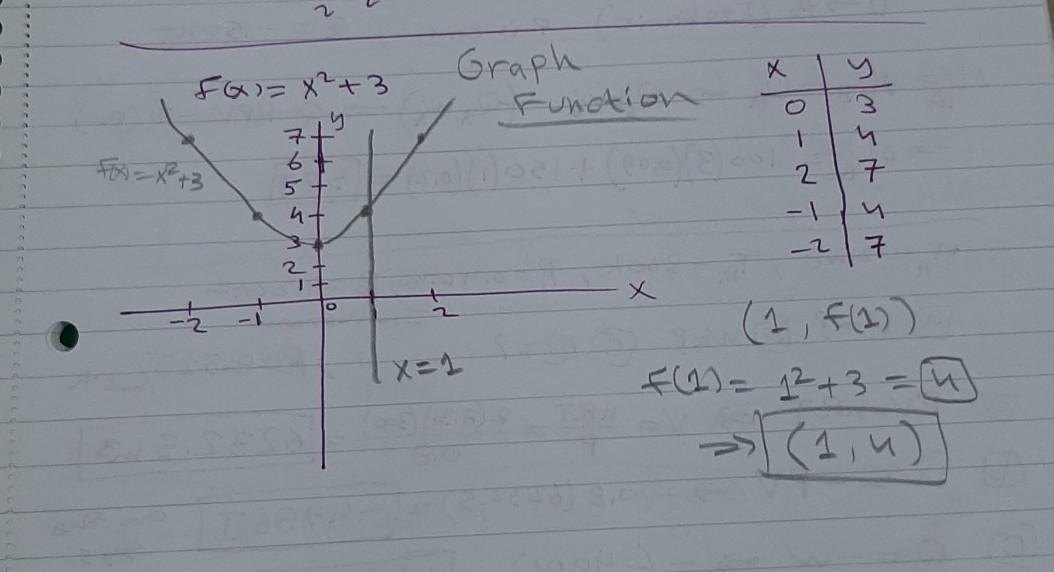 Graph
Function
f(x) = x² + 3
x y
0 3
1 4
2 7
-1 4
-2 7
y
7
6
5
4
3
2
1
f(x) = x² + 3
-2 -1 0 2 x
x = 1
(1, f(1))
f(1) = 1² + 3 = 4
⇒ (1, 4)